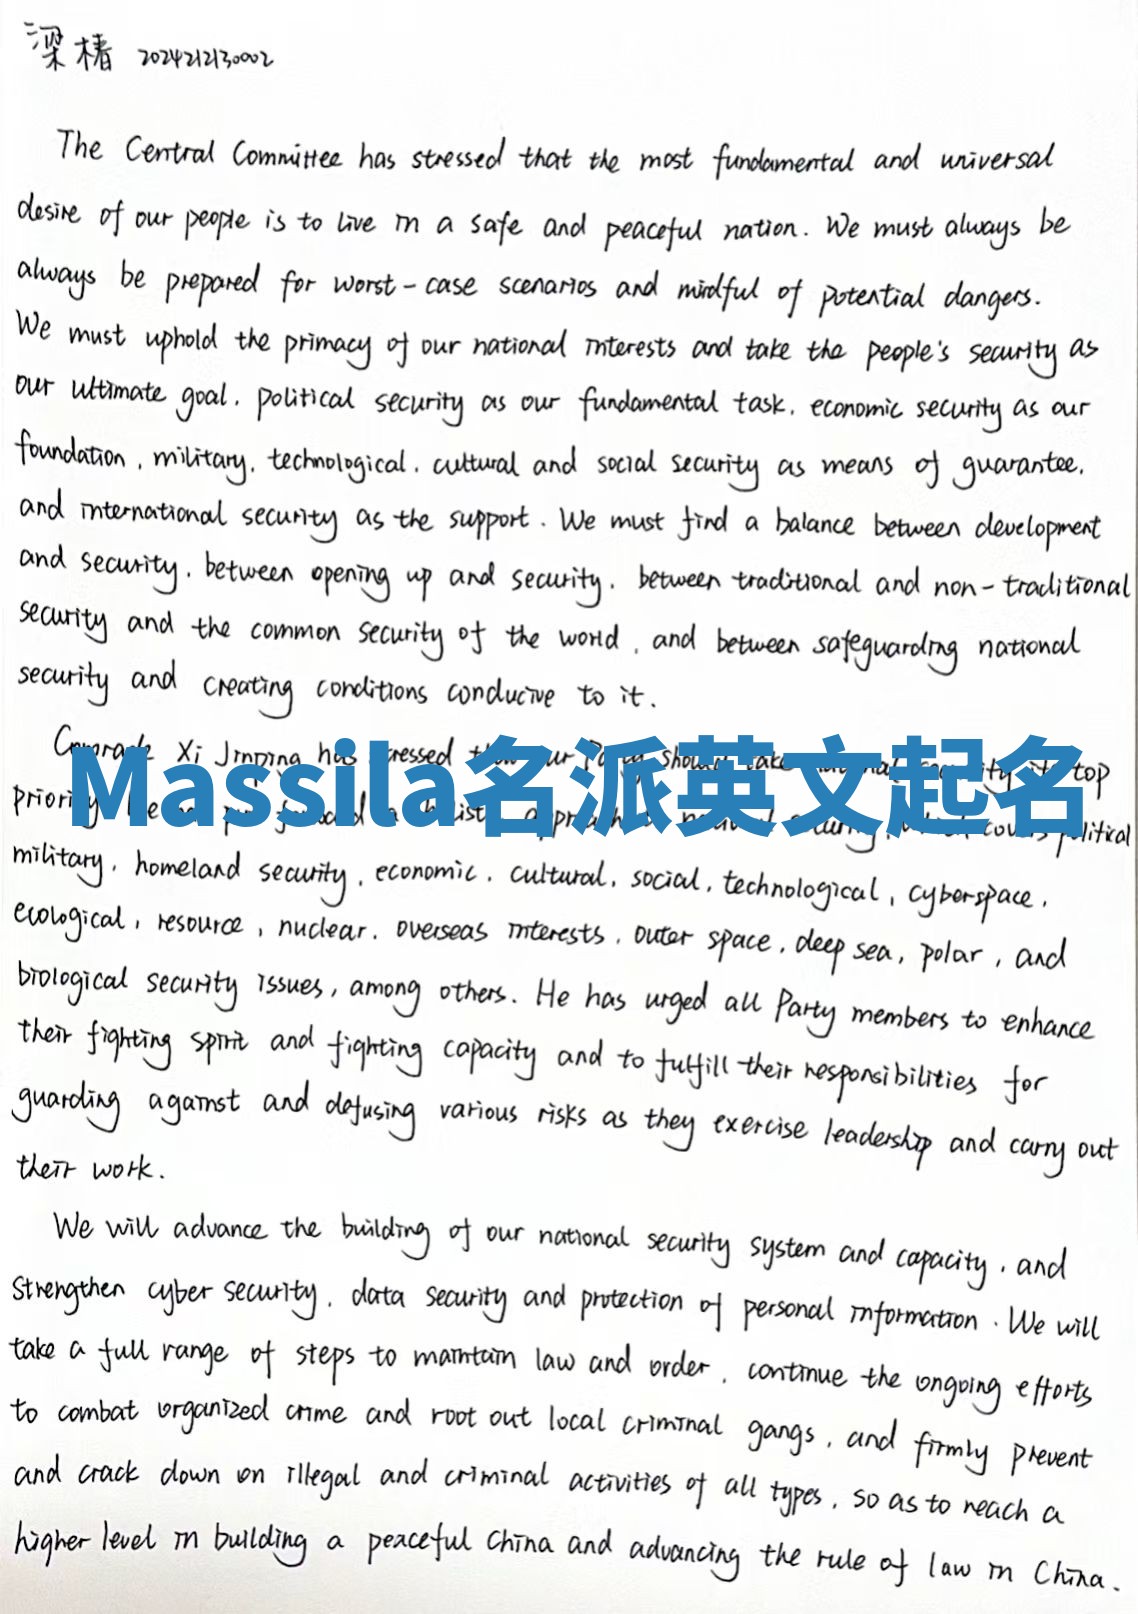 梁椿 2024212130002
The Central Committee has stressed that the most fundamental and universal
desire of our people is to live in a safe and peaceful nation. We must always be
always be prepared for worst-case scenarios and mindful of potential dangers.
We must uphold the primacy of our national interests and take the people's security as
our ultimate goal, political security as our fundamental task, economic security as our
foundation, military, technological, cultural and social security as means of guarantee,
and international security as the support. We must find a balance between development
and security, between opening up and security, between traditional and non-traditional
security and the common security of the world, and between safeguarding national
security and creating conditions conducive to it.
Comrade Xi Jinping has stressed our Party should take top
Massila名派英文起名
priority covers political
military, homeland security, economic, cultural, social, technological, cyberspace,
ecological, resource, nuclear, overseas interests, outer space, deep sea, polar, and
biological security issues, among others. He has urged all Party members to enhance
their fighting spirit and fighting capacity and to fulfill their responsibilities for
guarding against and defusing various risks as they exercise leadership and carry out
their work.
We will advance the building of our national security system and capacity, and
strengthen cyber security, data security and protection of personal information. We will
take a full range of steps to maintain law and order, continue the ongoing efforts
to combat organized crime and root out local criminal gangs, and firmly prevent
and crack down on illegal and criminal activities of all types, so as to reach a
higher level in building a peaceful China and advancing the rule of law in China.